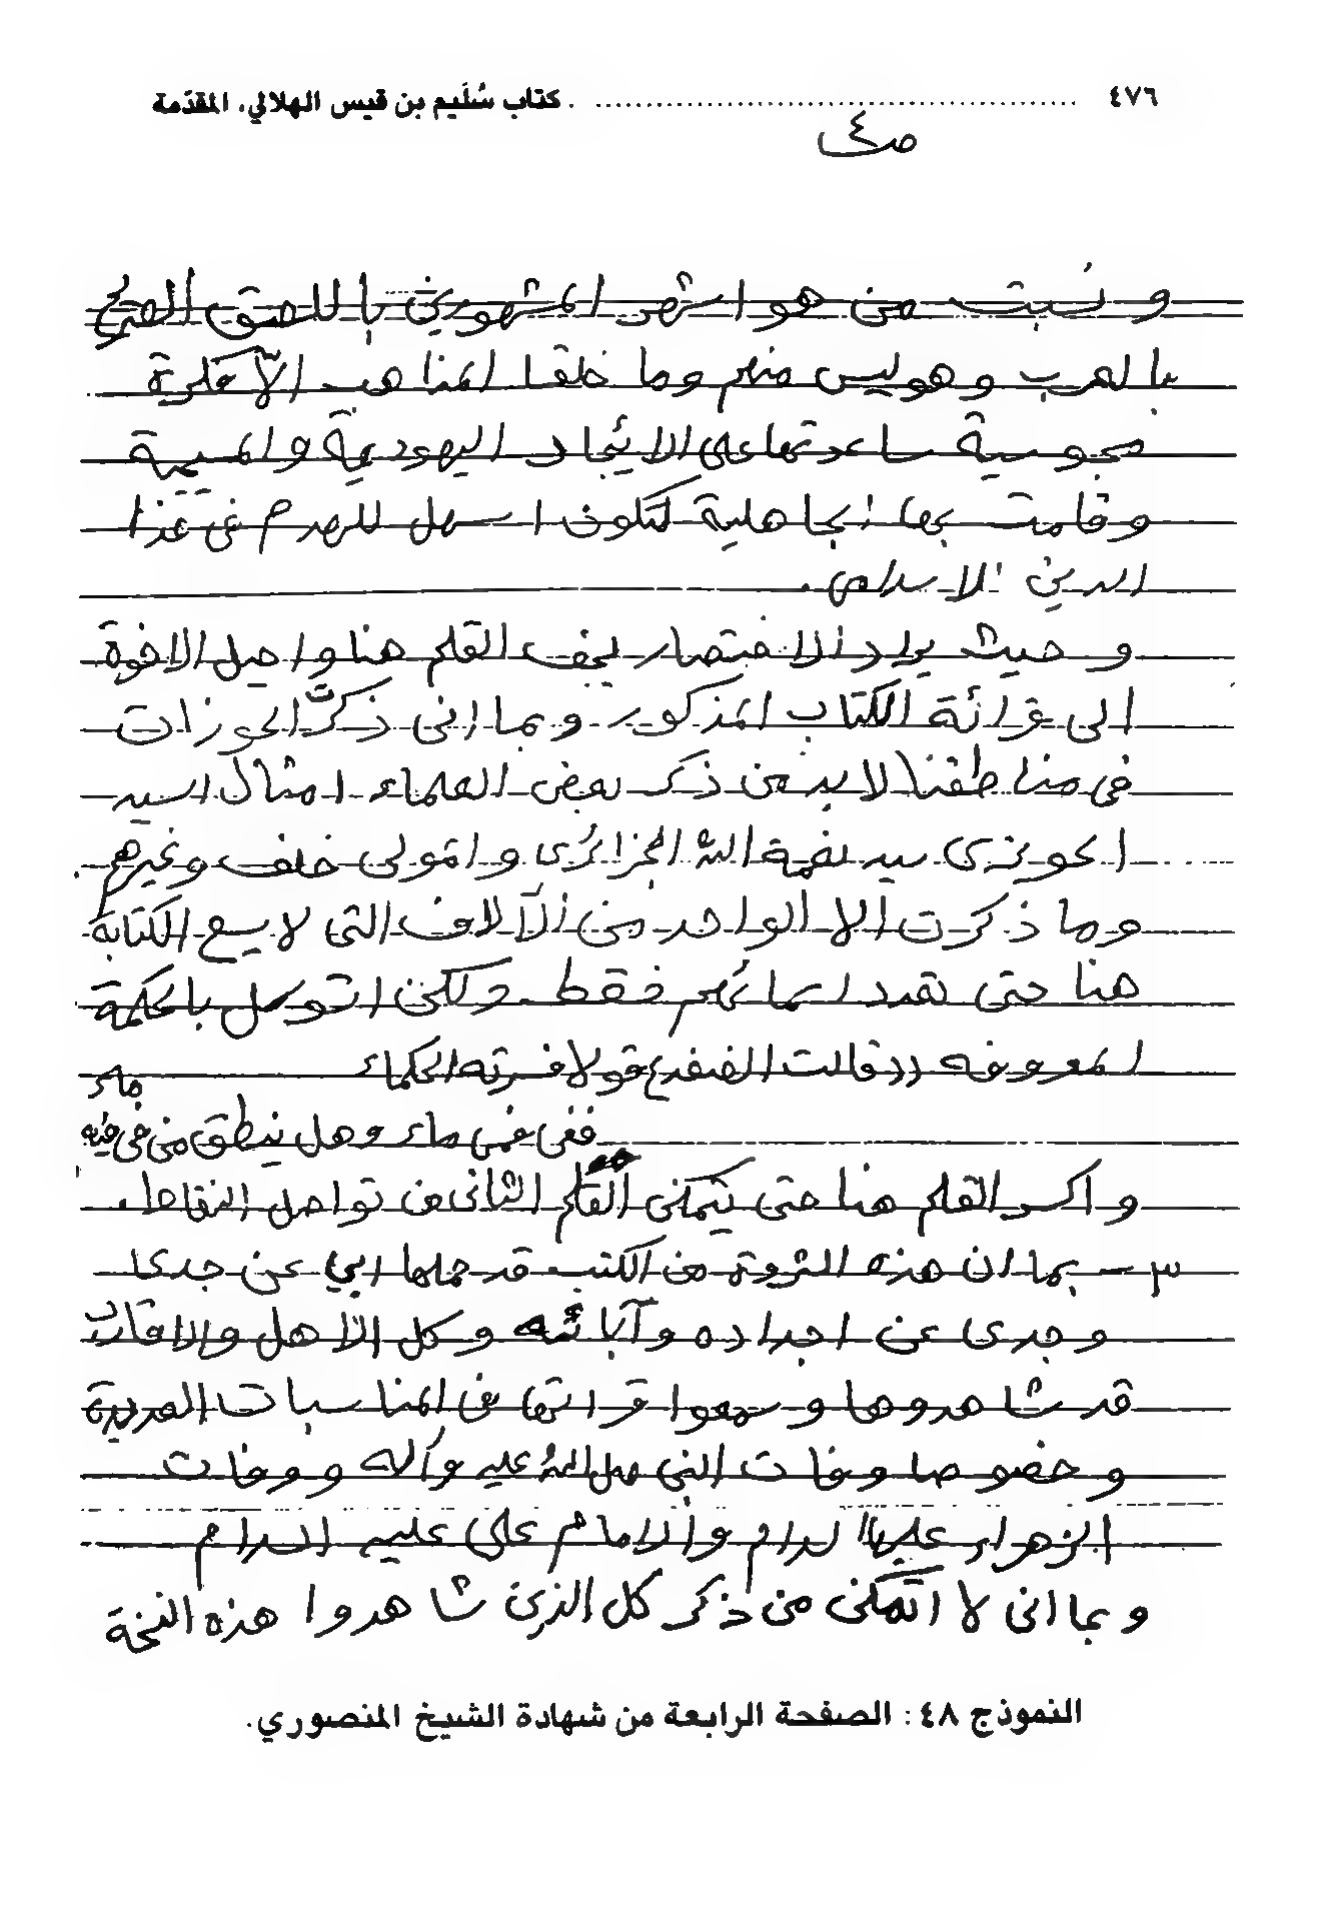 ٤٧٦ ........................................................ كتاب سُلَيم بن قيس الهلالي، المقدّمة
ص٤
ونسبت من هو اشهر المشهورين باللصق الصريح
بالعرب وهو ليس منهم وما خلقا المذاهب الا فكرية
مجوسية ساعدتها على الايجاد اليهودية والمسيحية
وقامت بها الجاهلية لتكون اسهل للهدم في هذا
الدين الاسلامى .
وحيث يراد الاختصار يجف القلم هنا واحيل الاخوة
الى قرائة الكتاب المذكور. وبما انى ذكرت الحوزات
فى مناطقنا لا بد من ذكر بعض العلماء امثال السيد
الحويزى سيد نعمة الله الجزائرى والمولى خلف وغيرهم
وما ذكرت الا الواحد من الآلاف التى لا يسع الكتابة
هنا حتى تعدد اسمائهم فقط . ولكن اتوكل بالحكمة
المعروفه ((قالت الضفدع قولا فسرته الحكماء
ففى فمى ماء وهل ينطق من فى فيه ماء
واكسر القلم هنا حتى يتمكن القلم الثانى من تواصل النقاط .
٣ – بما ان هذه الثروة من الكتب قد حملها ابي عن جدى
وجدى عن اجداده وآبائه وكل الأهل والاقارب
قد شاهدوها وسمعوا قرائتها فى المناسبات العديدة
وخصوصا وفات النبى صلى الله عليه وآله ووفات
الزهراء عليها السلام والامام على عليه السلام
وبما انى لا اتمكن من ذكر كل الذين شاهدوا هذه النسخة
النموذج ٤٨: الصفحة الرابعة من شهادة الشيخ المنصوري.